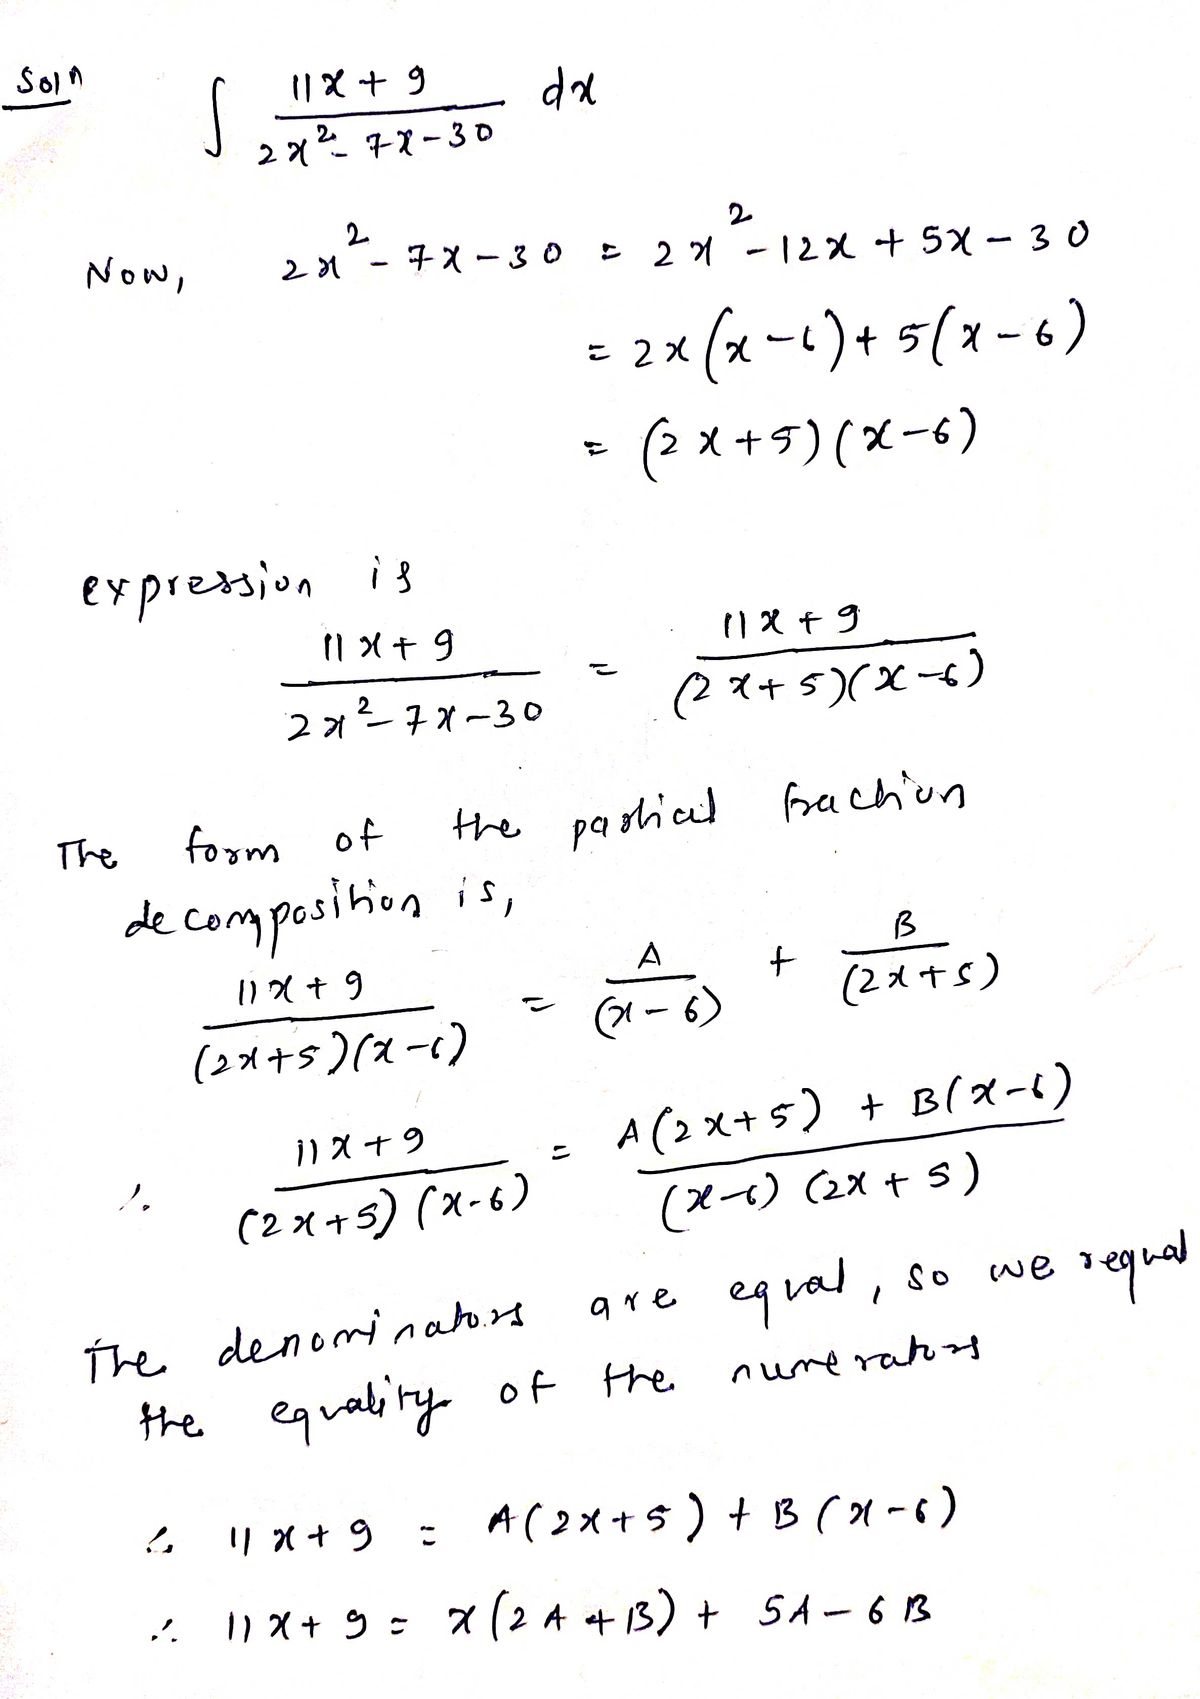 Soln ∫ (11x + 9)/(2x² - 7x - 30) dx
Now, 2x² - 7x - 30 = 2x² - 12x + 5x - 30
= 2x(x - 6) + 5(x - 6)
= (2x + 5)(x - 6)
expression is
(11x + 9)/(2x² - 7x - 30) = (11x + 9)/((2x + 5)(x - 6))
The form of the partical fraction
decomposition is,
(11x + 9)/((2x + 5)(x - 6)) = A/(x - 6) + B/(2x + 5)
∴ (11x + 9)/((2x + 5)(x - 6)) = (A(2x + 5) + B(x - 6))/((x - 6)(2x + 5))
The denominators are equal, so we requal
the equality of the numerators
∴ 11x + 9 = A(2x + 5) + B(x - 6)
∴ 11x + 9 = x(2A + B) + 5A - 6B